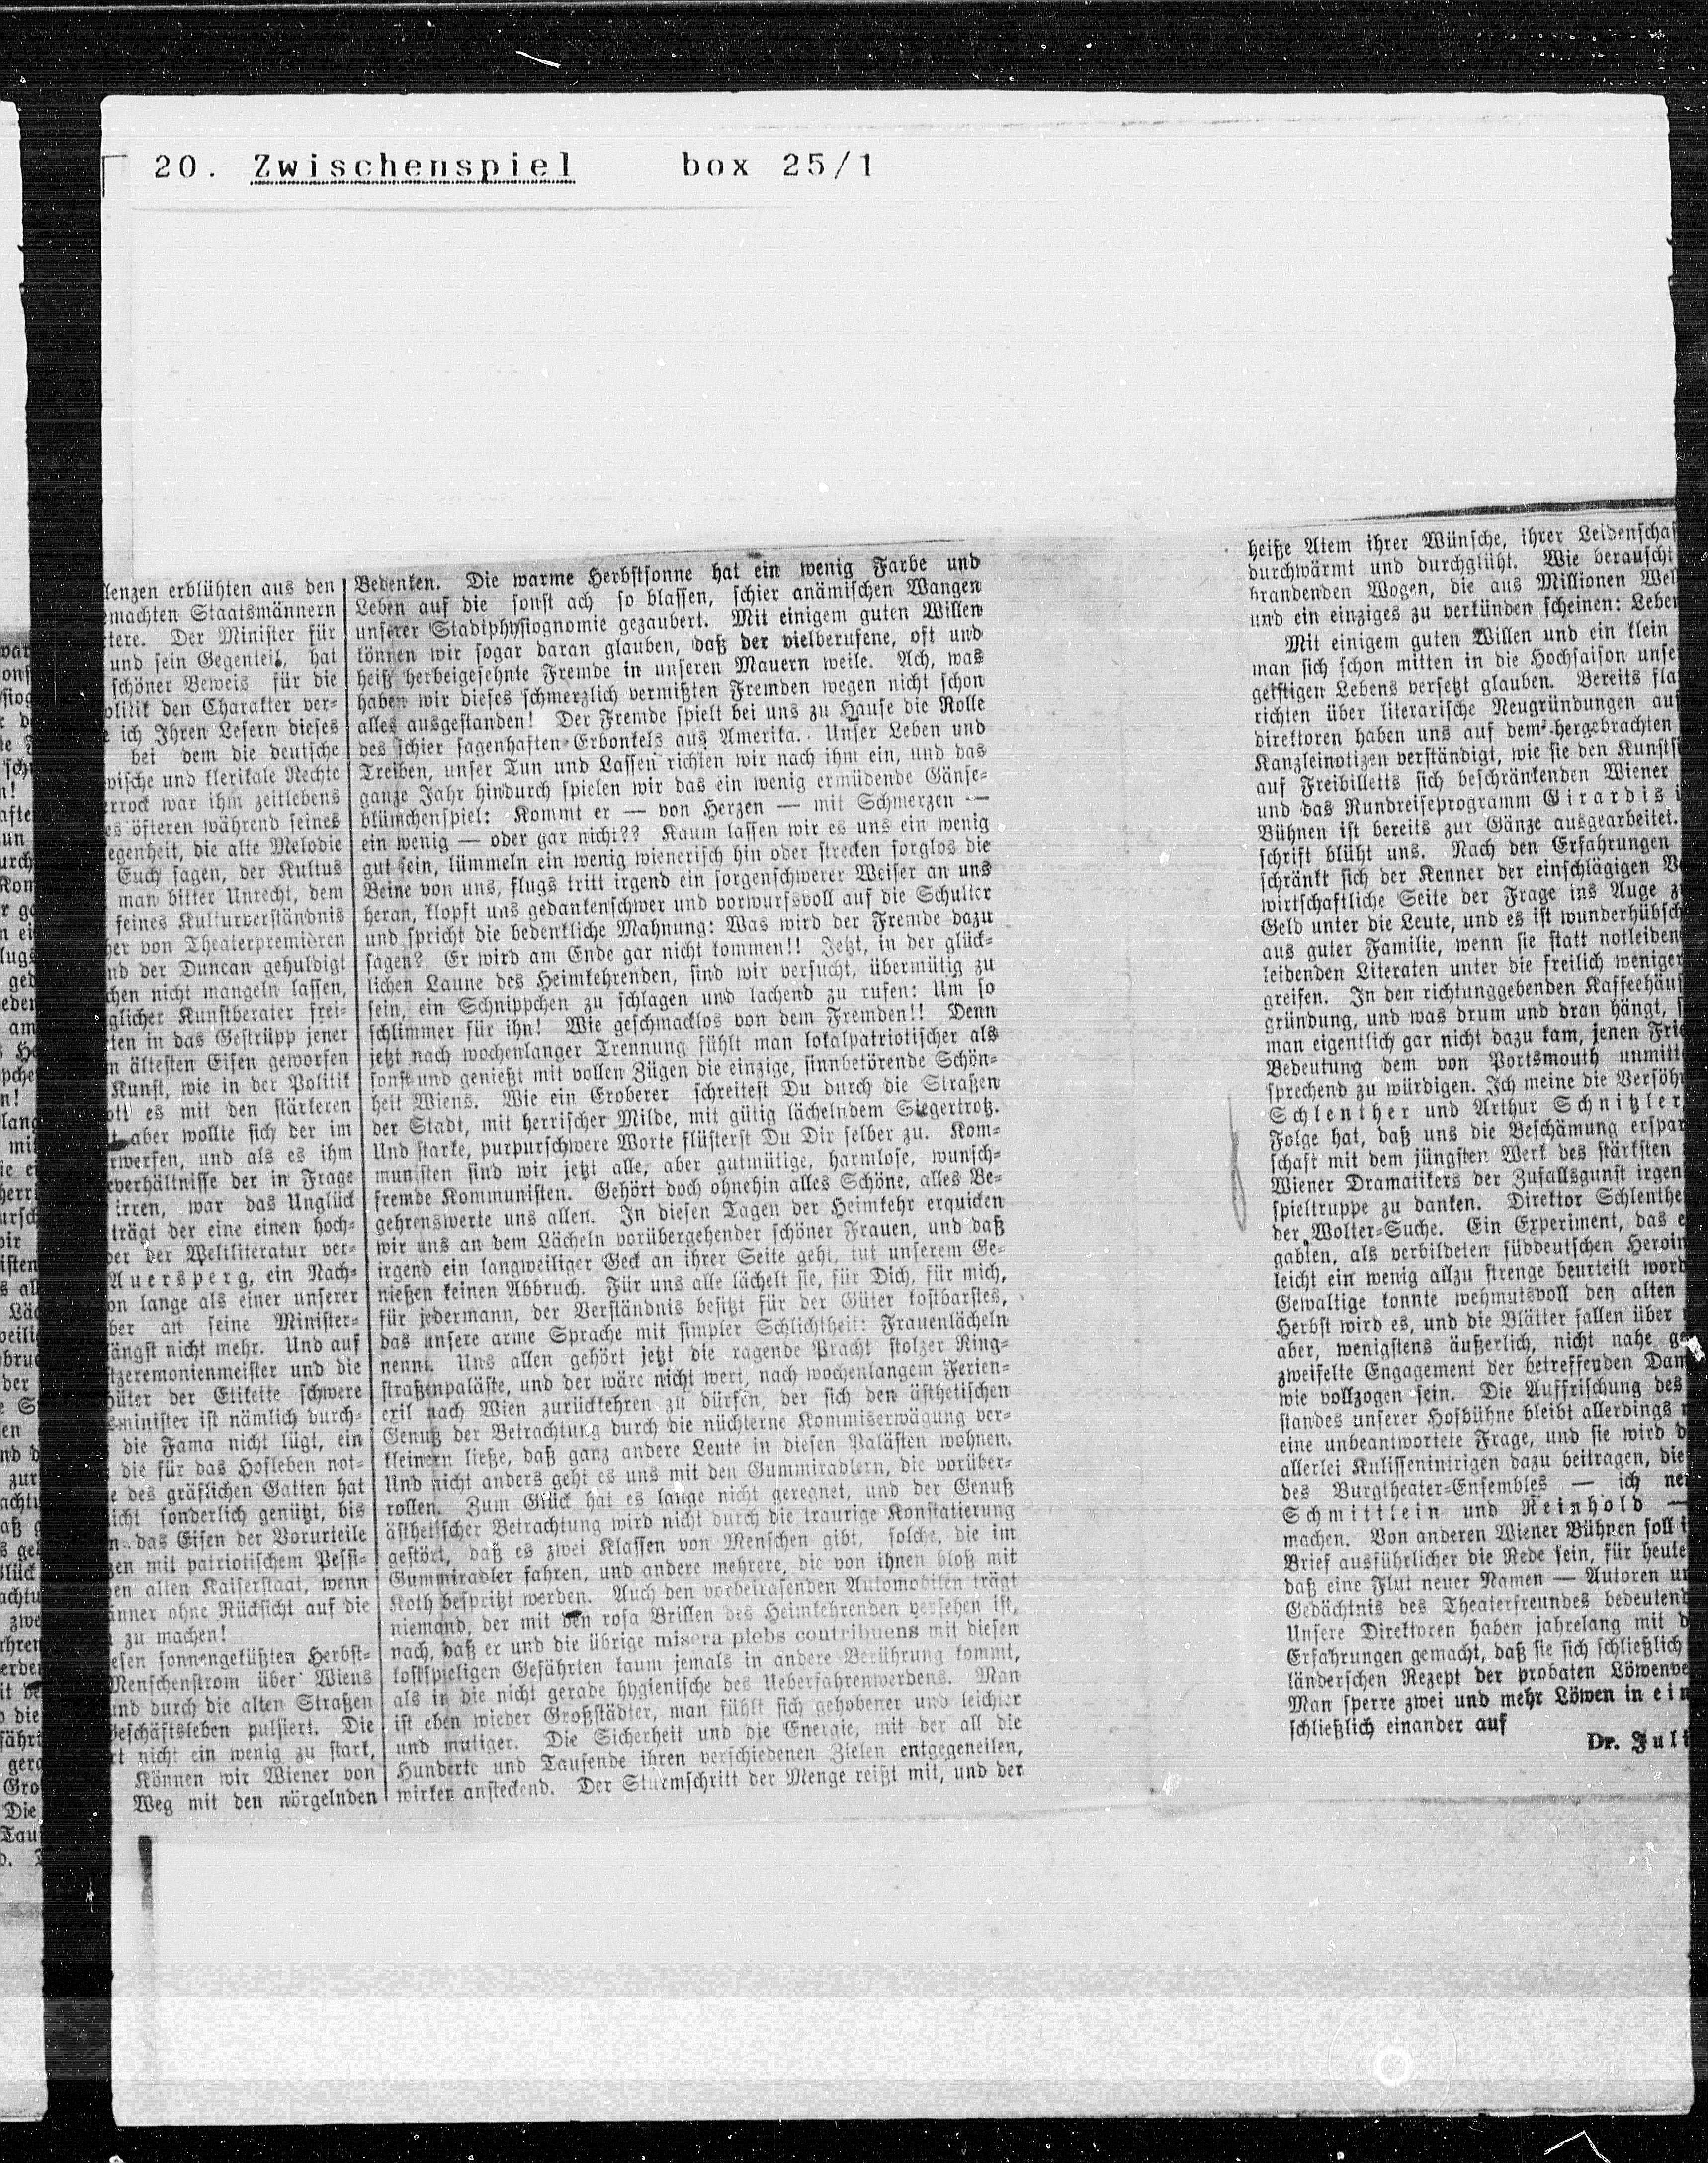 20. Zwischenspiel box 25/1
lenzen erblühten aus den
machten Staatsmännern
tere. Der Minister für
und sein Gegenteil, hat
schöner Beweis für die
olitik den Charakter ver-
ich Ihren Lesern dieses
bei dem die deutsche
wische und klerikale Rechte
errock war ihm zeitlebens
es öfteren während seines
egenheit, die alte Melodie
Euch sagen, der Kultus
man bitter Unrecht, dem
feines Kulturverständnis
her von Theaterpremièren
nd der Duncan gehuldigt
chen nicht mangeln lassen,
glicher Kunstberater frei-
ten in das Gestrüpp jener
n ältesten Eisen geworfen
Kunst, wie in der Politik
ott es mit den stärkeren
aber wollte sich der im
rwerfen, und als es ihm
verhältnisse der in Frage
irren, war das Unglück
trägt der eine einen Hoch-
der der Weltliteratur ver-
Auersperg, ein Nach-
on lange als einer unserer
ber an seine Minister-
längst nicht mehr. Und auf
tzeremonienmeister und die
Hüter der Etikette schwere
sminister ist nämlich durch-
die Fama nicht lügt, ein
die für das Hofleben not-
e des gräflichen Gatten hat
icht sonderlich genützt, bis
n das Eisen der Vorurteile
zen mit patriotischem Pessi-
en alten Kaiserstaat, wenn
änner ohne Rücksicht auf die
zu machen!
esen sonnengeküßten Herbst-
Menschenstrom über Wiens
und durch die alten Straßen
Geschäftsleben pulsiert. Die
rt nicht ein wenig zu stark,
Können wir Wiener von
Weg mit den nörgelnden
Bedenken. Die warme Herbstsonne hat ein wenig Farbe und
Leben auf die sonst ach so blassen, schier anämischen Wangen
unserer Stadtphysiognomie gezaubert. Mit einigem guten Willen
können wir sogar daran glauben, daß der vielberufene, oft und
heiß herbeigesehnte Fremde in unseren Mauern weile. Ach, was
haben wir dieses schmerzlich vermißten Fremden wegen nicht schon
alles ausgestanden! Der Fremde spielt bei uns zu Hause die Rolle
des schier sagenhaften Erbonkels aus Amerika. Unser Leben und
Treiben, unser Tun und Lassen richten wir nach ihm ein, und das
ganze Jahr hindurch spielen wir das ein wenig ermüdende Gänse-
blümchenspiel: Kommt er — von Herzen — mit Schmerzen —
ein wenig — oder gar nicht?? Kaum lassen wir es uns ein wenig
gut sein, lümmeln ein wenig wienerisch hin oder strecken sorglos die
Beine von uns, flugs tritt irgend ein sorgenschwerer Weiser an uns
heran, klopft uns gedankenschwer und vorwurfsvoll auf die Schulter
und spricht die bedenkliche Mahnung: Was wird der Fremde dazu
sagen? Er wird am Ende gar nicht kommen!! Jetzt, in der glück-
lichen Laune des Heimkehrenden, sind wir versucht, übermütig zu
sein, ein Schnippchen zu schlagen und lachend zu rufen: Um so
schlimmer für ihn! Wie geschmacklos von dem Fremden!! Denn
jetzt nach wochenlanger Trennung fühlt man lokalpatriotischer als
sonst und genießt mit vollen Zügen die einzige, sinnbetörende Schön-
heit Wiens. Wie ein Eroberer schreitest Du durch die Straßen
der Stadt, mit herrischer Milde, mit gütig lächelndem Siegertrotz.
Und starke, purpurschwere Worte flüsterst Du Dir selber zu. Kom-
munisten sind wir jetzt alle, aber gutmütige, harmlose, wunsch-
fremde Kommunisten. Gehört doch ohnehin alles Schöne, alles Be-
gehrenswerte uns allen. In diesen Tagen der Heimkehr erquicken
wir uns an dem Lächeln vorübergehender schöner Frauen, und daß
irgend ein langweiliger Geck an ihrer Seite geht, tut unserem Ge-
nießen keinen Abbruch. Für uns alle lächelt sie, für Dich, für mich,
für jedermann, der Verständnis besitzt für der Güter kostbarstes,
das unsere arme Sprache mit simpler Schlichtheit: Frauenlächeln
nennt. Uns allen gehört jetzt die ragende Pracht stolzer Ring-
straßenpaläste, und der wäre nicht wert, nach wochenlangem Ferien-
exil nach Wien zurückkehren zu dürfen, der sich den ästhetischen
Genuß der Betrachtung durch die nüchterne Kommiserwägung ver-
kleinern ließe, daß ganz andere Leute in diesen Palästen wohnen.
Und nicht anders geht es uns mit den Gummiradlern, die vorüber-
rollen. Zum Glück hat es lange nicht geregnet, und der Genuß
ästhetischer Betrachtung wird nicht durch die traurige Konstatierung
gestört, daß es zwei Klassen von Menschen gibt, solche, die im
Gummiradler fahren, und andere mehrere, die von ihnen bloß mit
Koth bespritzt werden. Auch den vorbeirasenden Automobilen trägt
niemand, der mit den rosa Brillen des Heimkehrenden versehen ist,
nach, daß er und die übrige misera plebs contribuens mit diesen
kostspieligen Gefährten kaum jemals in andere Berührung kommt,
als in die nicht gerade hygienische des Ueberfahrenwerdens. Man
ist eben wieder Großstädter, man fühlt sich gehobener und leichter
und mutiger. Die Sicherheit und die Energie, mit der all die
Hunderte und Tausende ihren verschiedenen Zielen entgegeneilen,
wirken ansteckend. Der Sturmschritt der Menge reißt mit, und der
heiße Atem ihrer Wünsche, ihrer Leidenschaf
durchwärmt und durchglüht. Wie berauscht
brandenden Wogen, die aus Millionen Wel
und ein einziges zu verkünden scheinen: Leben
Mit einigem guten Willen und ein klein
man sich schon mitten in die Hochsaison unse
geistigen Lebens versetzt glauben. Bereits fla
richten über literarische Neugründungen auf
direktoren haben uns auf dem hergebrachten
Kanzleinotizen verständigt, wie sie den Kunsts
auf Freibilletts sich beschränkenden Wiener
und das Rundreiseprogramm Girardis i
Bühnen ist bereits zur Gänze ausgearbeitet.
schrift blüht uns. Nach den Erfahrungen
schränkt sich der Kenner der einschlägigen V
wirtschaftliche Seite der Frage ins Auge z
Geld unter die Leute, und es ist wunderhübsch
aus guter Familie, wenn sie statt notleiden
leidenden Literaten unter die freilich weniger
greifen. In den richtunggebenden Kaffeehäus
gründung, und was drum und dran hängt, s
man eigentlich gar nicht dazu kam, jenen Frie
Bedeutung dem von Portsmouth unmitt
sprechend zu würdigen. Ich meine die Versöh
Schlenther und Arthur Schnitzler
Folge hat, daß uns die Beschämung erspar
schaft mit dem jüngsten Werk des stärksten
Wiener Dramatikers der Zufallsgunst irgen
spieltruppe zu danken. Direktor Schlenthe
der Wolter-Suche. Ein Experiment, das e
gabten, als verbildeten süddeutschen Heroin
leicht ein wenig allzu strenge beurteilt word
Gewaltige konnte wehmutsvoll den alten
Herbst wird es, und die Blätter fallen über
aber, wenigstens äußerlich, nicht nahe ge
zweifelte Engagement der betreffenden Dam
wie vollzogen sein. Die Auffrischung des
standes unserer Hofbühne bleibt allerdings
eine unbeantwortete Frage, und sie wird d
allerlei Kulissenintrigen dazu beitragen, die
des Burgtheater-Ensembles — ich ne
Schmittlein und Reinhold —
machen. Von anderen Wiener Bühnen soll i
Brief ausführlicher die Rede sein, für heute
daß eine Flut neuer Namen — Autoren un
Gedächtnis des Theaterfreundes bedeutend
Unsere Direktoren haben jahrelang mit d
Erfahrungen gemacht, daß sie sich schließlich
länderschen Rezept der probaten Löwenve
Man sperre zwei und mehr Löwen in ein
schließlich einander auf
Dr. Juli